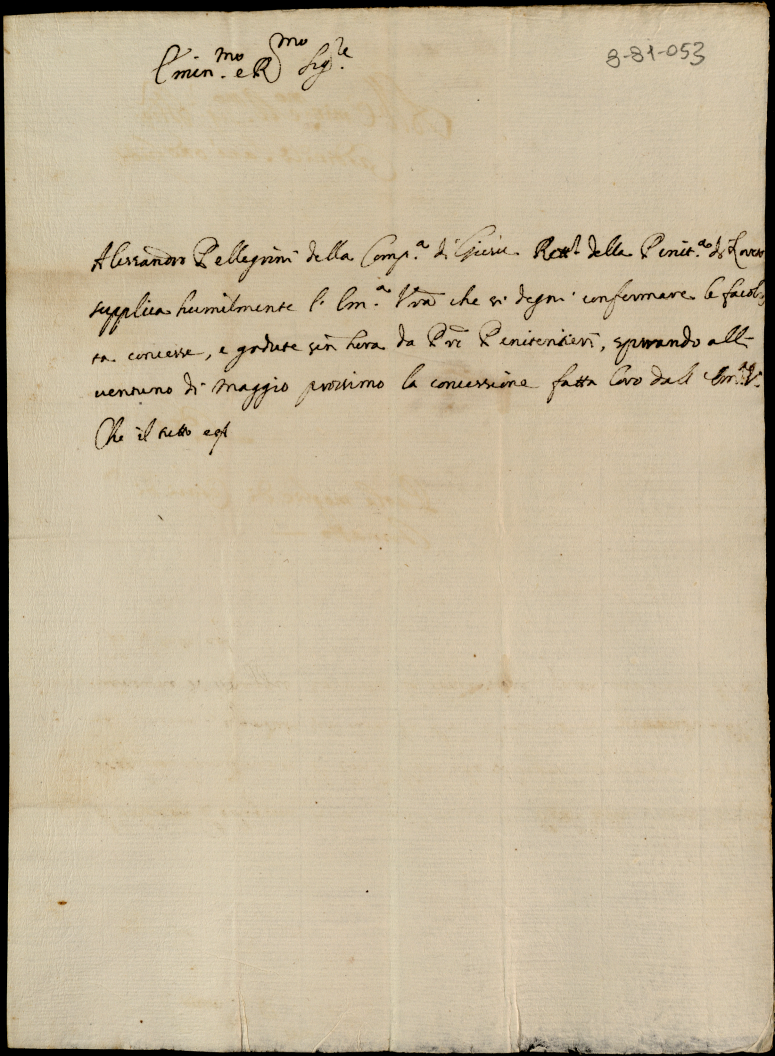 8-81-053
Emin.mo e R.mo Sig.re
Alessandro Pellegrini della Comp.a di Giesu Rett.r della Penit.a di Loreto
supplica humilmente l' Em.a Vra che si degni confermare le facol-
ta concesse, e godute sin hora da Pri Penitentieri, spirando all-
ventuno di Maggio prossimo la concessione fatta loro dall' Em.a V.
Che il tutto